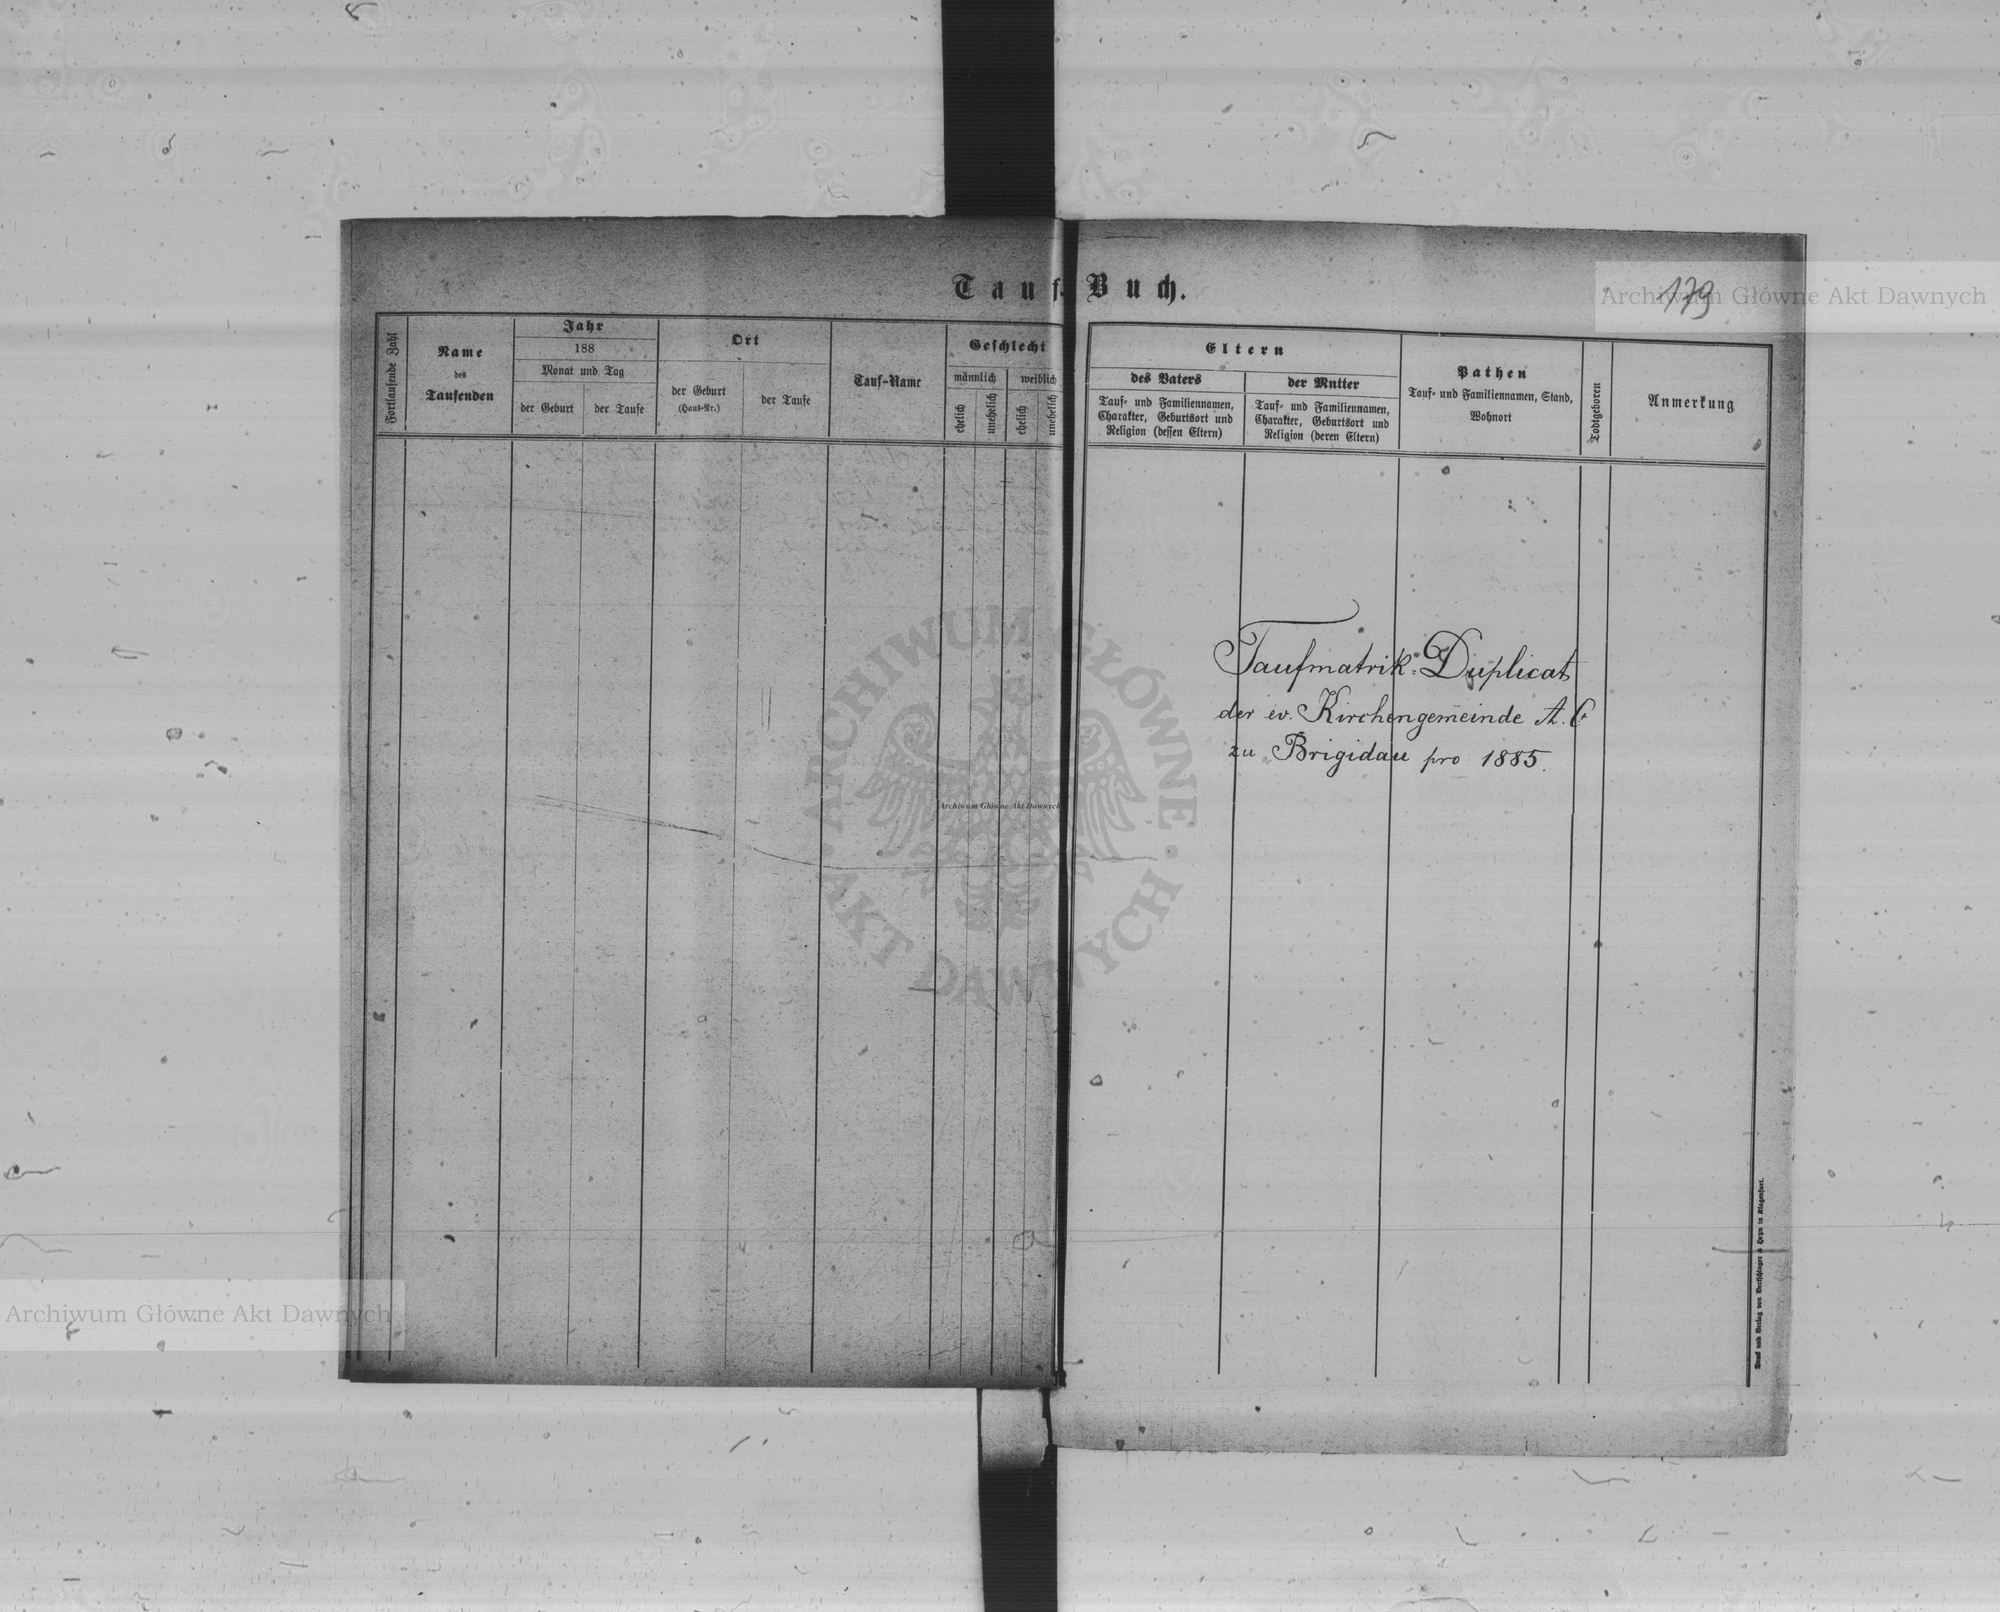 Tauf-Buch.
179
Archiwum Główne Akt Dawnych
Fortlaufende Zahl
Name
des
Taufenden
Jahr
188
Monat und Tag
der Geburt
der Taufe
Ort
der Geburt
(Haus-Nr.)
der Taufe
Tauf-Name
Geschlecht
männlich
weiblich
ehelich
unehelich
ehelich
unehelich
Eltern
des Vaters
Tauf- und Familiennamen,
Charakter, Geburtsort und
Religion (dessen Eltern)
der Mutter
Tauf- und Familiennamen,
Charakter, Geburtsort und
Religion (deren Eltern)
Pathen
Tauf- und Familiennamen, Stand,
Wohnort
Todtgeboren
Anmerkung
Taufmatrik-Duplicat
der ev. Kirchengemeinde A. C
zu Brigidau pro 1885.
ARCHIWUM GŁÓWNE
AKT DAWNYCH
Archiwum Główne Akt Dawnych
Archiwum Główne Akt Dawnych
Druck und Verlag von Bertschinger & Heyn in Klagenfurt.